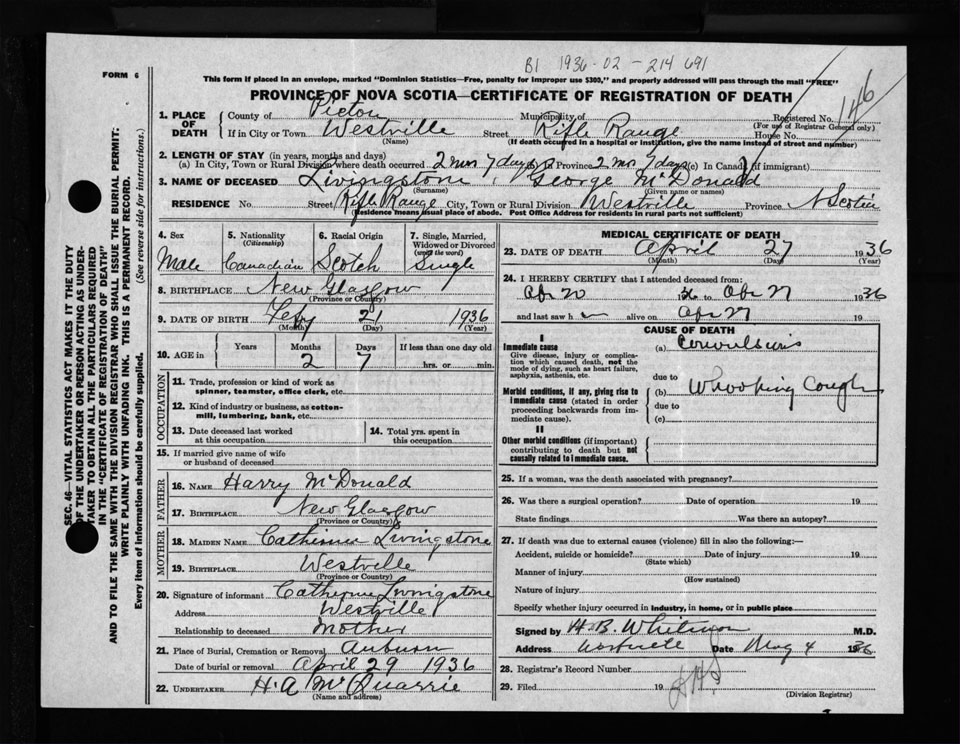 B1 1936-02-214691
FORM 6
This form if placed in an envelope, marked "Dominion Statistics—Free, penalty for improper use $300," and properly addressed will pass through the mail "FREE"
PROVINCE OF NOVA SCOTIA—CERTIFICATE OF REGISTRATION OF DEATH
Registered No. 146
(For use of Registrar General only)
1. PLACE OF DEATH
County of Pictou Municipality of
If in City or Town Westville Street Rifle Range House No.
(Name) (If death occurred in a hospital or institution, give the name instead of street and number)
2. LENGTH OF STAY (in years, months and days)
(a) In City, Town or Rural Division where death occurred 2 mos 7 days (b) Province 2 mos 7 days (c) In Canada (if immigrant)
3. NAME OF DECEASED Livingstone, George McDonald
(Surname) (Given name or names)
RESIDENCE No. Street Rifle Range City, Town or Rural Division Westville Province N Scotia
(Residence means usual place of abode. Post Office Address for residents in rural parts not sufficient)
4. Sex Male
5. Nationality (Citizenship) Canadian
6. Racial Origin Scotch
7. Single, Married, Widowed or Divorced (write the word) Single
8. BIRTHPLACE New Glasgow
(Province or Country)
9. DATE OF BIRTH Feby 21 1936
(Month) (Day) (Year)
10. AGE in Years Months 2 Days 7 If less than one day old hrs. or min.
OCCUPATION
11. Trade, profession or kind of work as spinner, teamster, office clerk, etc.
12. Kind of industry or business, as cotton-mill, lumbering, bank, etc.
13. Date deceased last worked at this occupation
14. Total yrs. spent in this occupation
15. If married give name of wife or husband of deceased
FATHER
16. NAME Harry McDonald
17. BIRTHPLACE New Glasgow
(Province or Country)
MOTHER
18. MAIDEN NAME Catherine Livingstone
19. BIRTHPLACE Westville
(Province or Country)
20. Signature of informant Catherine Livingstone
Address Westville
Relationship to deceased Mother
21. Place of Burial, Cremation or Removal Auburn
Date of burial or removal April 29 1936
22. UNDERTAKER H. A McQuarrie
(Name and address)
MEDICAL CERTIFICATE OF DEATH
23. DATE OF DEATH April 27 1936
(Month) (Day) (Year)
24. I HEREBY CERTIFY that I attended deceased from:
Apr 20 36 to Apr 27 1936
and last saw h alive on Apr 27 19
CAUSE OF DEATH
I
Immediate cause
Give disease, injury or complication which caused death, not the mode of dying, such as heart failure, asphyxia, asthenia, etc.
(a) Convulsions
due to
Morbid conditions, if any, giving rise to immediate cause (stated in order proceeding backwards from immediate cause).
(b) Whooping Cough
due to
(c)
II
Other morbid conditions (if important) contributing to death but not causally related to immediate cause.
25. If a woman, was the death associated with pregnancy?
26. Was there a surgical operation? Date of operation 19
State findings Was there an autopsy?
27. If death was due to external causes (violence) fill in also the following:—
Accident, suicide or homicide? Date of injury 19
(State which)
Manner of injury
(How sustained)
Nature of injury
Specify whether injury occurred in industry, in home, or in public place
Signed by H. B. Whitman M.D.
Address Westville Date May 4 1936
28. Registrar's Record Number
29. Filed 19
(Division Registrar)
SEC. 46—VITAL STATISTICS ACT MAKES IT THE DUTY
OF THE UNDERTAKER OR PERSON ACTING AS UNDER-
TAKER TO OBTAIN ALL THE PARTICULARS REQUIRED
IN THE "CERTIFICATE OF REGISTRATION OF DEATH"
AND TO FILE THE SAME WITH THE DIVISION REGISTRAR WHO SHALL ISSUE THE BURIAL PERMIT.
WRITE PLAINLY WITH UNFADING INK. THIS IS A PERMANENT RECORD.
Every item of information should be carefully supplied. (See reverse side for instructions.)